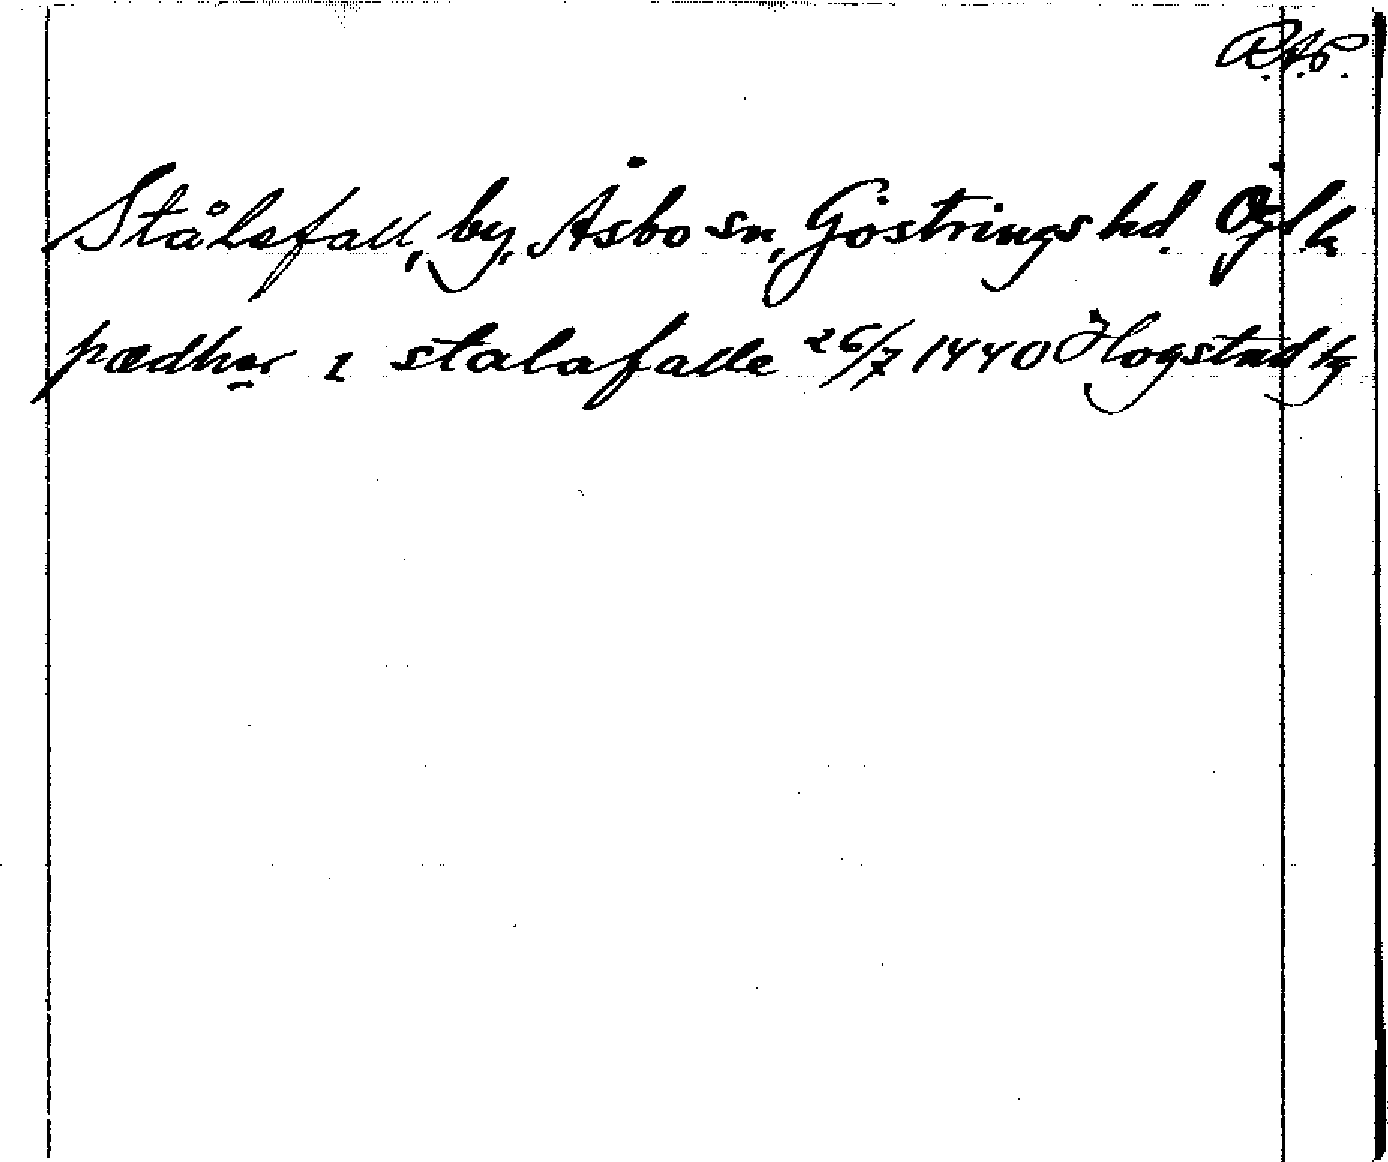 R.A.P.
Stålsfall, by, Åsbo sn, Göstrings hd. Ög l h
pædher i stalafalle 26/7 1440 Hogstad kg